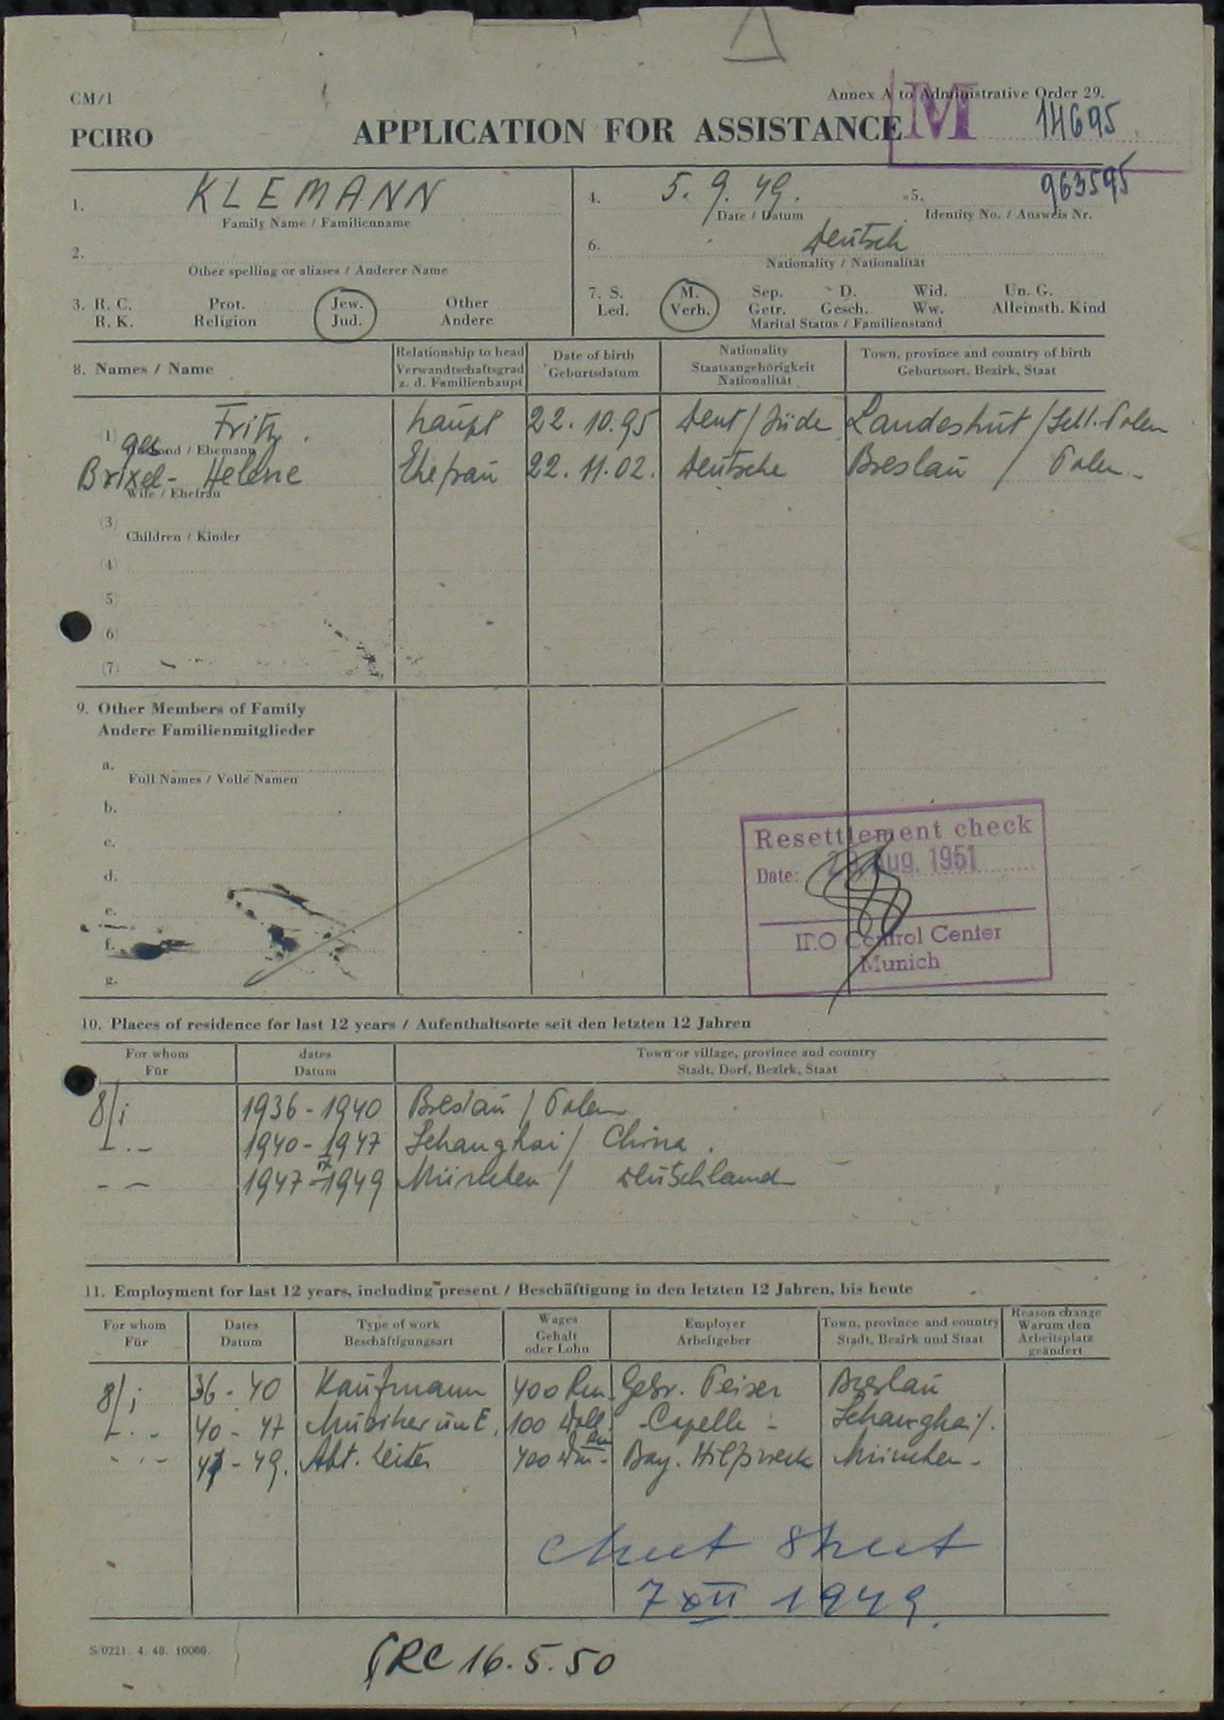 CM/1
Annex A to Administrative Order 29.
PCIRO
APPLICATION FOR ASSISTANCE
M
14695
1. KLEMANN
Family Name / Familienname
4. 5. 9. 49.
Date / Datum
5. 963595
Identity No. / Ausweis Nr.
2.
Other spelling or aliases / Anderer Name
6. Deutsch
Nationality / Nationalität
3. R. C. Prot. Jew. Other
R. K. Religion Jud. Andere
7. S. M. Sep. D. Wid. Un. G.
Led. Verh. Getr. Gesch. Ww. Alleinsth. Kind
Marital Status / Familienstand
8. Names / Name
Relationship to head
Verwandtschaftsgrad
z. d. Familienhaupt
Date of birth
Geburtsdatum
Nationality
Staatsangehörigkeit
Nationalität
Town, province and country of birth
Geburtsort, Bezirk, Staat
(1) Fritz. Haupt 22. 10. 95 Deut/Jüde Landeshut / Schl. Polen
Husband / Ehemann
geb
Brixel- Helene Ehefrau 22. 11. 02. Deutsche Breslau / Polen-
Wife / Ehefrau
(3)
Children / Kinder
(4)
5)
6)
(7)
9. Other Members of Family
Andere Familienmitglieder
a.
Full Names / Volle Namen
b.
c.
d.
e.
f.
g.
Resettlement check
Date: 29 Aug. 1951
IRO Control Center
Munich
10. Places of residence for last 12 years / Aufenthaltsorte seit den letzten 12 Jahren
For whom
Für
dates
Datum
Town or village, province and country
Stadt, Dorf, Bezirk, Staat
8/i 1936 - 1940 Breslau / Polen
1940 - 1947 Schanghai / China.
1947 - 1949 München / Deutschland
11. Employment for last 12 years, including present / Beschäftigung in den letzten 12 Jahren, bis heute
For whom
Für
Dates
Datum
Type of work
Beschäftigungsart
Wages
Gehalt
oder Lohn
Employer
Arbeitgeber
Town, province and country
Stadt, Bezirk und Staat
Reason change
Warum den
Arbeitsplatz
geändert
8/i 36 - 40 Kaufmann 400 Rm Gebr. Peiser Breslau
40 - 47 Musiker 100 Doll. -Capelle- Schanghai.
47 - 49. Abt. Leiter 400 Dm- Bay. Hilfswerk München-
7 XII 1949.
S/0221. 4. 48. 10000.
RC 16. 5. 50